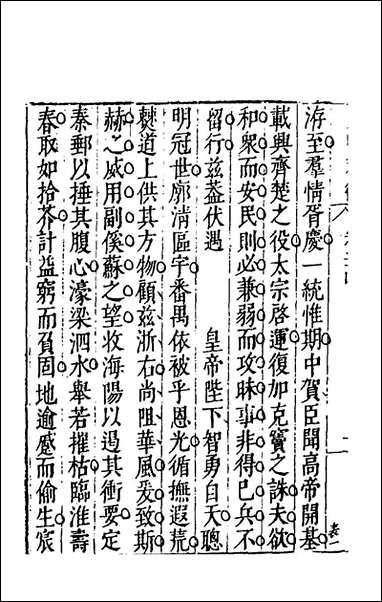 洊至羣情胥慶一統惟期中賀臣聞高帝開基
載興齊楚之役太宗啓運復加克竇之誅夫欲
和衆而安民則必兼弱而攻昧事非得已兵不
留行茲盖伏遇　　皇帝陛下智勇自天聰
明冠世廓清區宇番禺依被乎恩光循撫遐荒
僰道上供其方物顧兹浙右尚阻華風爰致斯
赫之威用副傒蘇之望收海陽以遏其衝要定
秦郵以捶其腹心濠梁泗水舉若摧枯臨淮壽
春取如拾芥計益窮而負固地逾蹙而偷生宸
二